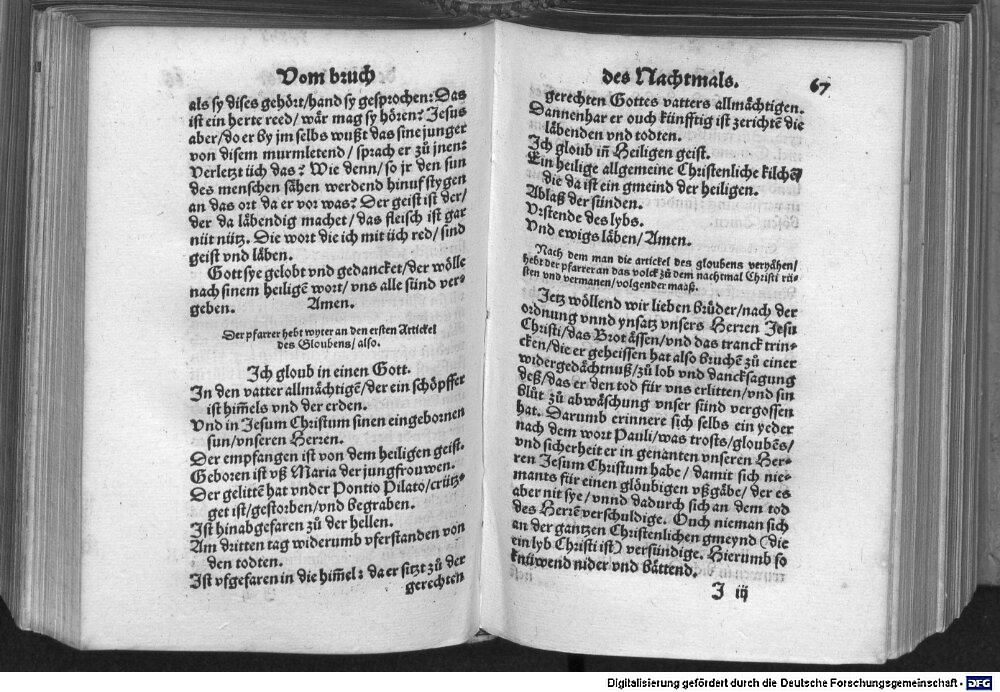 Vom bruch
als sy dises gehört/hand sy gesprochen: Das
ist ein herte reed/ wär mag sy hören? Jesus
aber/do er by jm selbs wußt das sine junger
von disem murmletend/ sprach er zů jnen:
Verletzt üch das? Wie denn/ so jr den sun
des menschen sähen werdend hinuf stygen
an das ort da er vor was? Der geist ist der/
der da läbendig machet/ das fleisch ist gar
nüt nütz. Die wort die ich mit üch red/ sind
geist vnd läben.
Gott sye gelobt vnd gedancket/der wölle
nach sinem heiligē wort/ vns alle sünd ver⸗
geben. Amen.
Der pfarrer hebt wyter an den ersten Artickel
des Gloubens/ also.
Ich gloub in einen Gott.
In den vatter allmächtigē/der ein schöpffer
ist him̄els vnd der erden.
Vnd in Jesum Christum sinen eingebornen
sun/vnseren Herren.
Der empfangen ist von dem heiligen geist.
Geboren ist vß Maria der jungfrouwen.
Der gelittē hat vnder Pontio Pilato/crütz⸗
get ist/gestorben/vnd begraben.
Ist hinabgefaren zů der hellen.
Am dritten tag widerumb vferstanden von
den todten.
Ist vfgefaren in die him̄el: da er sitzt zů der
gerechten
des Nachtmals. 67
gerechten Gottes vatters allmächtigen.
Dannenhar er ouch künfftig ist zerichtē die
läbenden vnd todten.
Ich gloub in̄ Heiligen geist.
Ein heilige allgemeine Christenliche kilchē/
die da ist ein gmeind der heiligen.
Ablaß der sünden.
Vrstende des lybs.
Vnd ewigs läben/ Amen.
Nach dem man die artickel des gloubens veryähen/
hebt der pfarrer an das volck zů dem nachtmal Christi rü⸗
sten vnd vermanen/volgender maaß.
Jetz wöllend wir lieben brüder/nach der
ordnung vnnd ynsatz vnsers Herren Jesu
Christi/das Brot ässen/vnd das tranck trin⸗
cken/die er geheissen hat also bruchē zů einer
widergedächtnuß/zů lob vnd dancksagung
deß/das er den tod für vns erlitten/vnd sin
blůt zů abwäschung vnser sünd vergossen
hat. Darumb erinnere sich selbs ein yeder
nach dem wort Pauli/was trosts/gloubēs/
vnd sicherheit er in genanten vnseren Her⸗
ren Jesum Christum habe/ damit sich nie⸗
mants für einen glöubigen vßgäbe/ der es
aber nit sye/ vnnd dadurch sich an dem tod
des Herrē verschuldige. Ouch nieman sich
an der gantzen Christenlichen gmeynd (die
ein lyb Christi ist) versündige. Hierumb so
knüwend nider vnd bättend.
J iij
Digitalisierung gefördert durch die Deutsche Forschungsgemeinschaft - DFG